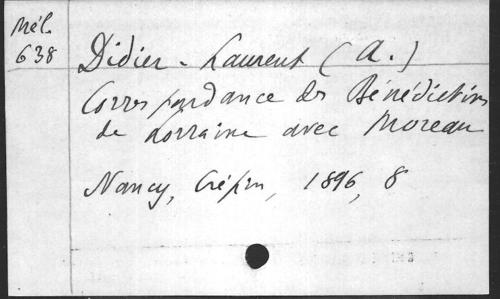 Mél.
638
Didier-Laurent (A.)
Correspondance des Bénédictins
de Lorraine avec Moreau
Nancy, Crépin, 1896, 8